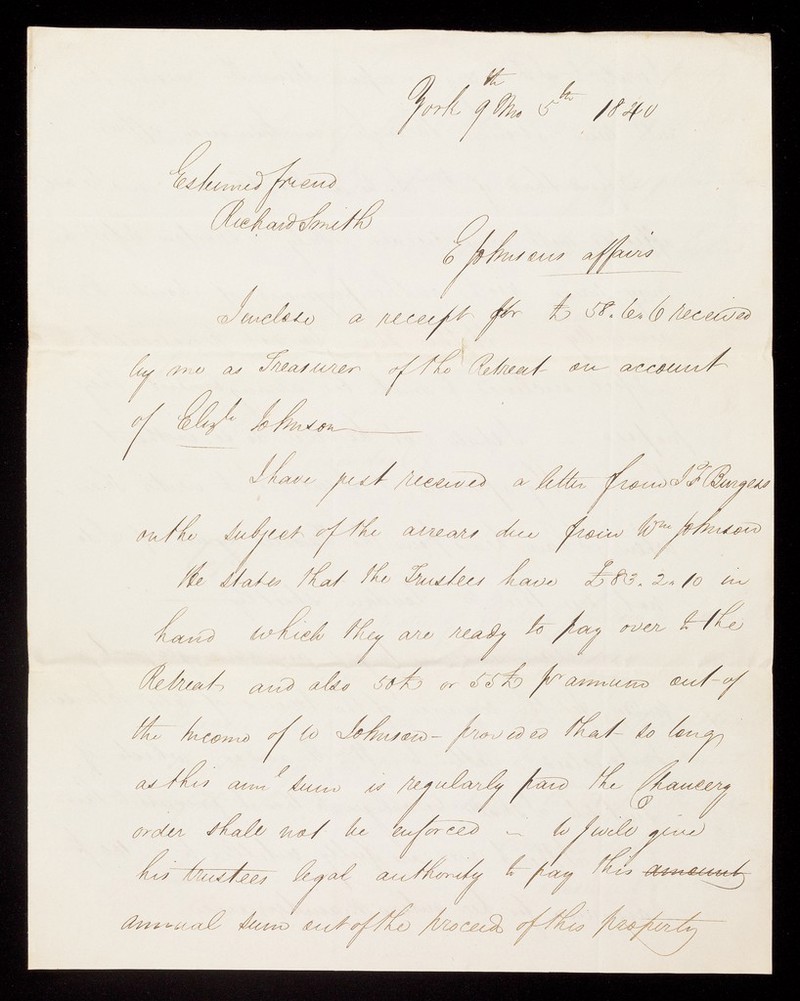 York 9th Mo 5th 1840
Esteemed friend
Richard Smith
E Johnsons affairs
I inclose a receipt for £ 58.6.6 received
by me as Treasurer of the Retreat on account
of Elizth Johnson
I have just received a letter from Burgess
on the subject of the arrears due from Wm Johnson
He states that the Trustees have £83.2.10 in
hand which they are ready to pay over to the
Retreat and also 50£ or 55£ pr annum out of
the Income of W Johnson - provided that so long
as this annl sum is regularly paid the Chancery
order shall not be enforced - W J will give
his trustees legal authority to pay this amount
annual sum out of the proceeds of this property